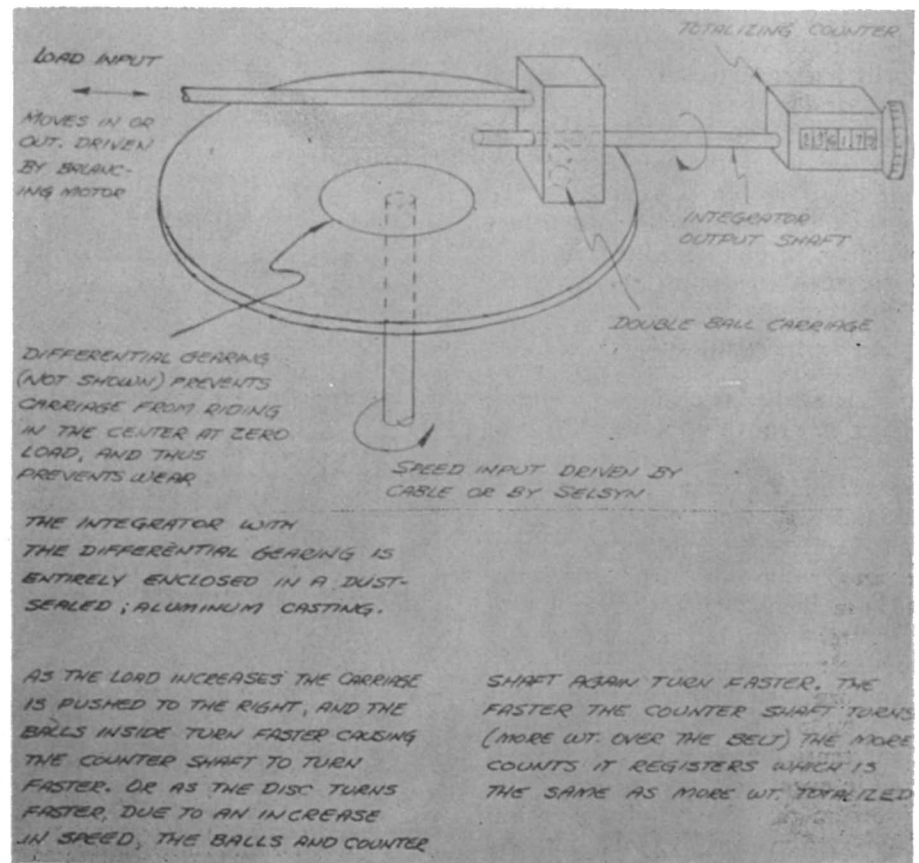 TOTALIZING COUNTER
LOAD INPUT
MOVES IN OR
OUT. DRIVEN
BY BALANC-
ING MOTOR
INTEGRATOR
OUTPUT SHAFT
DOUBLE BALL CARRIAGE
DIFFERENTIAL GEARING
(NOT SHOWN) PREVENTS
CARRIAGE FROM RIDING
IN THE CENTER AT ZERO
LOAD, AND THUS
PREVENTS WEAR
SPEED INPUT DRIVEN BY
CABLE OR BY SELSYN
THE INTEGRATOR WITH
THE DIFFERENTIAL GEARING IS
ENTIRELY ENCLOSED IN A DUST-
SEALED; ALUMINUM CASTING.
AS THE LOAD INCREASES THE CARRIAGE
IS PUSHED TO THE RIGHT, AND THE
BALLS INSIDE TURN FASTER CAUSING
THE COUNTER SHAFT TO TURN
FASTER. OR AS THE DISC TURNS
FASTER, DUE TO AN INCREASE
IN SPEED, THE BALLS AND COUNTER
SHAFT AGAIN TURN FASTER. THE
FASTER THE COUNTER SHAFT TURNS
(MORE WT. OVER THE BELT) THE MORE
COUNTS IT REGISTERS WHICH IS
THE SAME AS MORE WT. TOTALIZED